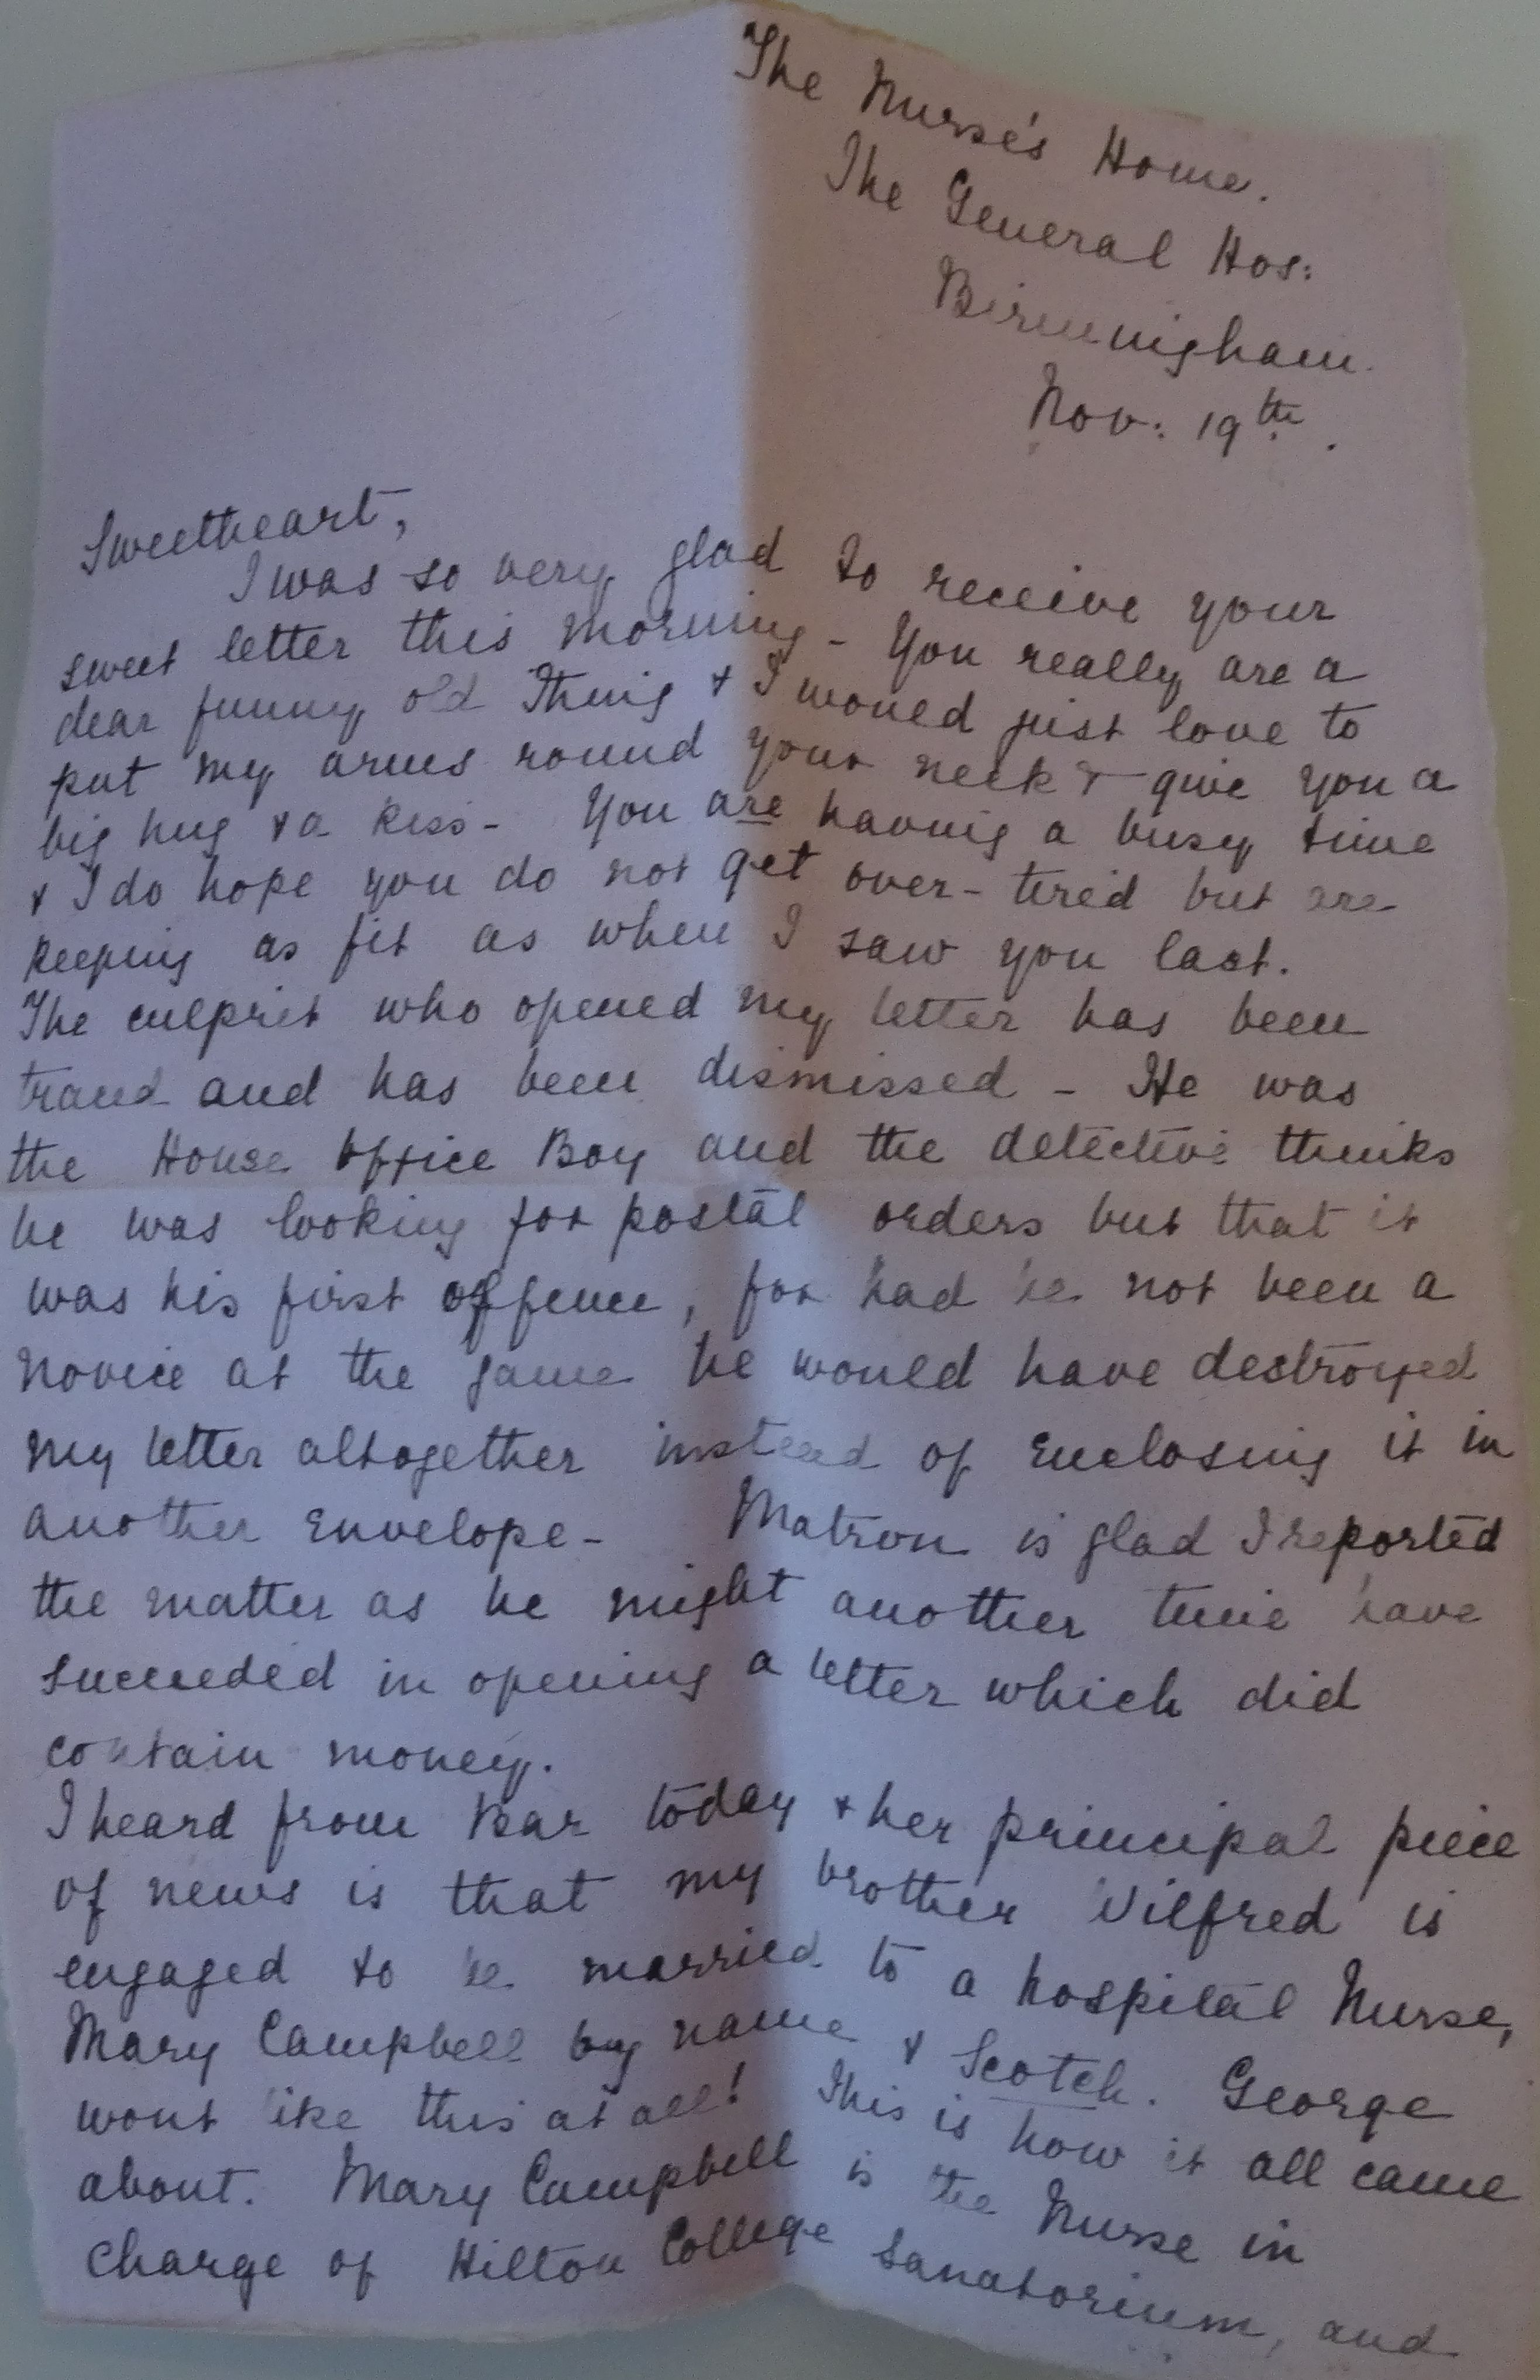 The Nurse's Home.
The General Hos:
Birmingham.
Nov: 19th.
Sweetheart,
I was so very glad to receive your
sweet letter this morning - You really are a
dear funny old Thing & I would just love to
put my arms round your neck & give you a
big hug & a kiss - You are having a busy time
& I do hope you do not get over-tired but are
keeping as fit as when I saw you last.
The culprit who opened my letter has been
found and has been dismissed - He was
the House Office Boy and the detective thinks
he was looking for postal orders but that it
was his first offence, for had he not been a
novice at the game he would have destroyed
my letter altogether instead of enclosing it in
another envelope - Matron is glad I reported
the matter as he might another time have
succeeded in opening a letter which did
contain money.
I heard from Bar today & her principal piece
of news is that my brother Wilfred is
engaged to be married to a hospital Nurse,
Mary Campbell by name & Scotch. George
wont like this at all! This is how it all came
about. Mary Campbell is the Nurse in
charge of Hilton College Sanatorium, and